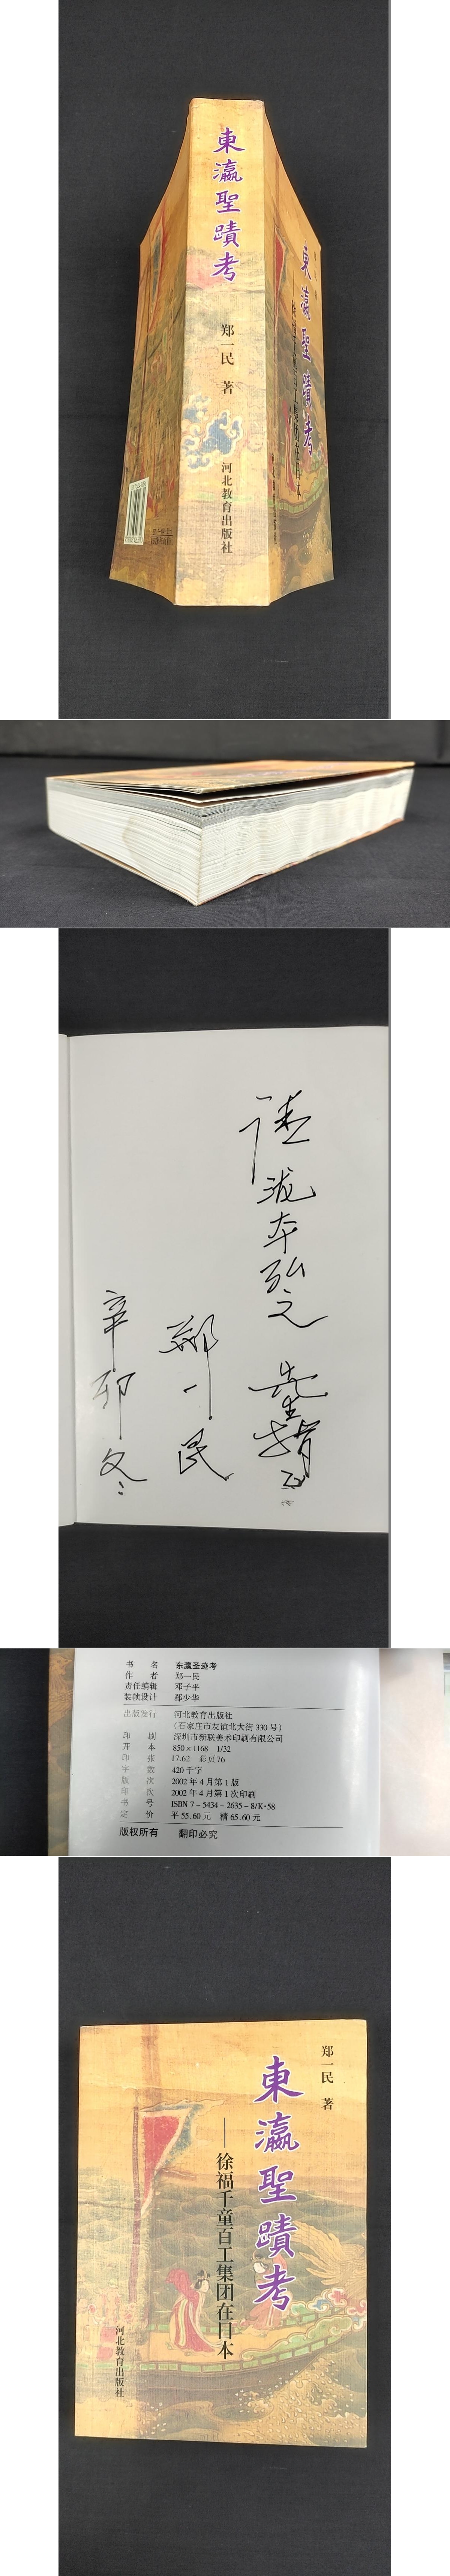 東瀛聖蹟考
郑一民 著
河北教育出版社
東瀛聖蹟考
请
泷本弘之
先生指正
郑一民
辛卯冬
书 名 东瀛圣迹考
作 者 郑一民
责任编辑 邓子平
装帧设计 郄少华
出版发行 河北教育出版社
(石家庄市友谊北大街 330 号)
印 刷 深圳市新联美术印刷有限公司
开 本 850×1168 1/32
印 张 17.62 彩页76
字 数 420千字
版 次 2002年4月第1版
印 次 2002年4月第1次印刷
书 号 ISBN 7-5434-2635-8/K·58
定 价 平 55.60 元 精 65.60 元
版权所有 翻印必究
郑一民 著
東瀛聖蹟考
——徐福千童百工集团在日本
河北教育出版社